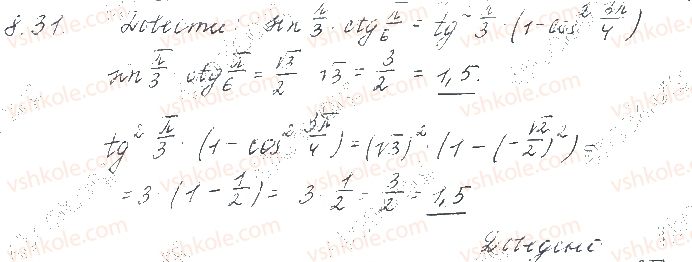 8.31. Довести: sin π/3 · ctg π/6 = tg² π/3 (1 - cos² 3π/4)
sin π/3 · ctg π/6 = √3/2 · √3 = 3/2 = 1,5.
tg² π/3 · (1 - cos² 3π/4) = (√3)² · (1 - (-√2/2)²) =
= 3 · (1 - 1/2) = 3 · 1/2 = 3/2 = 1,5
Доведено